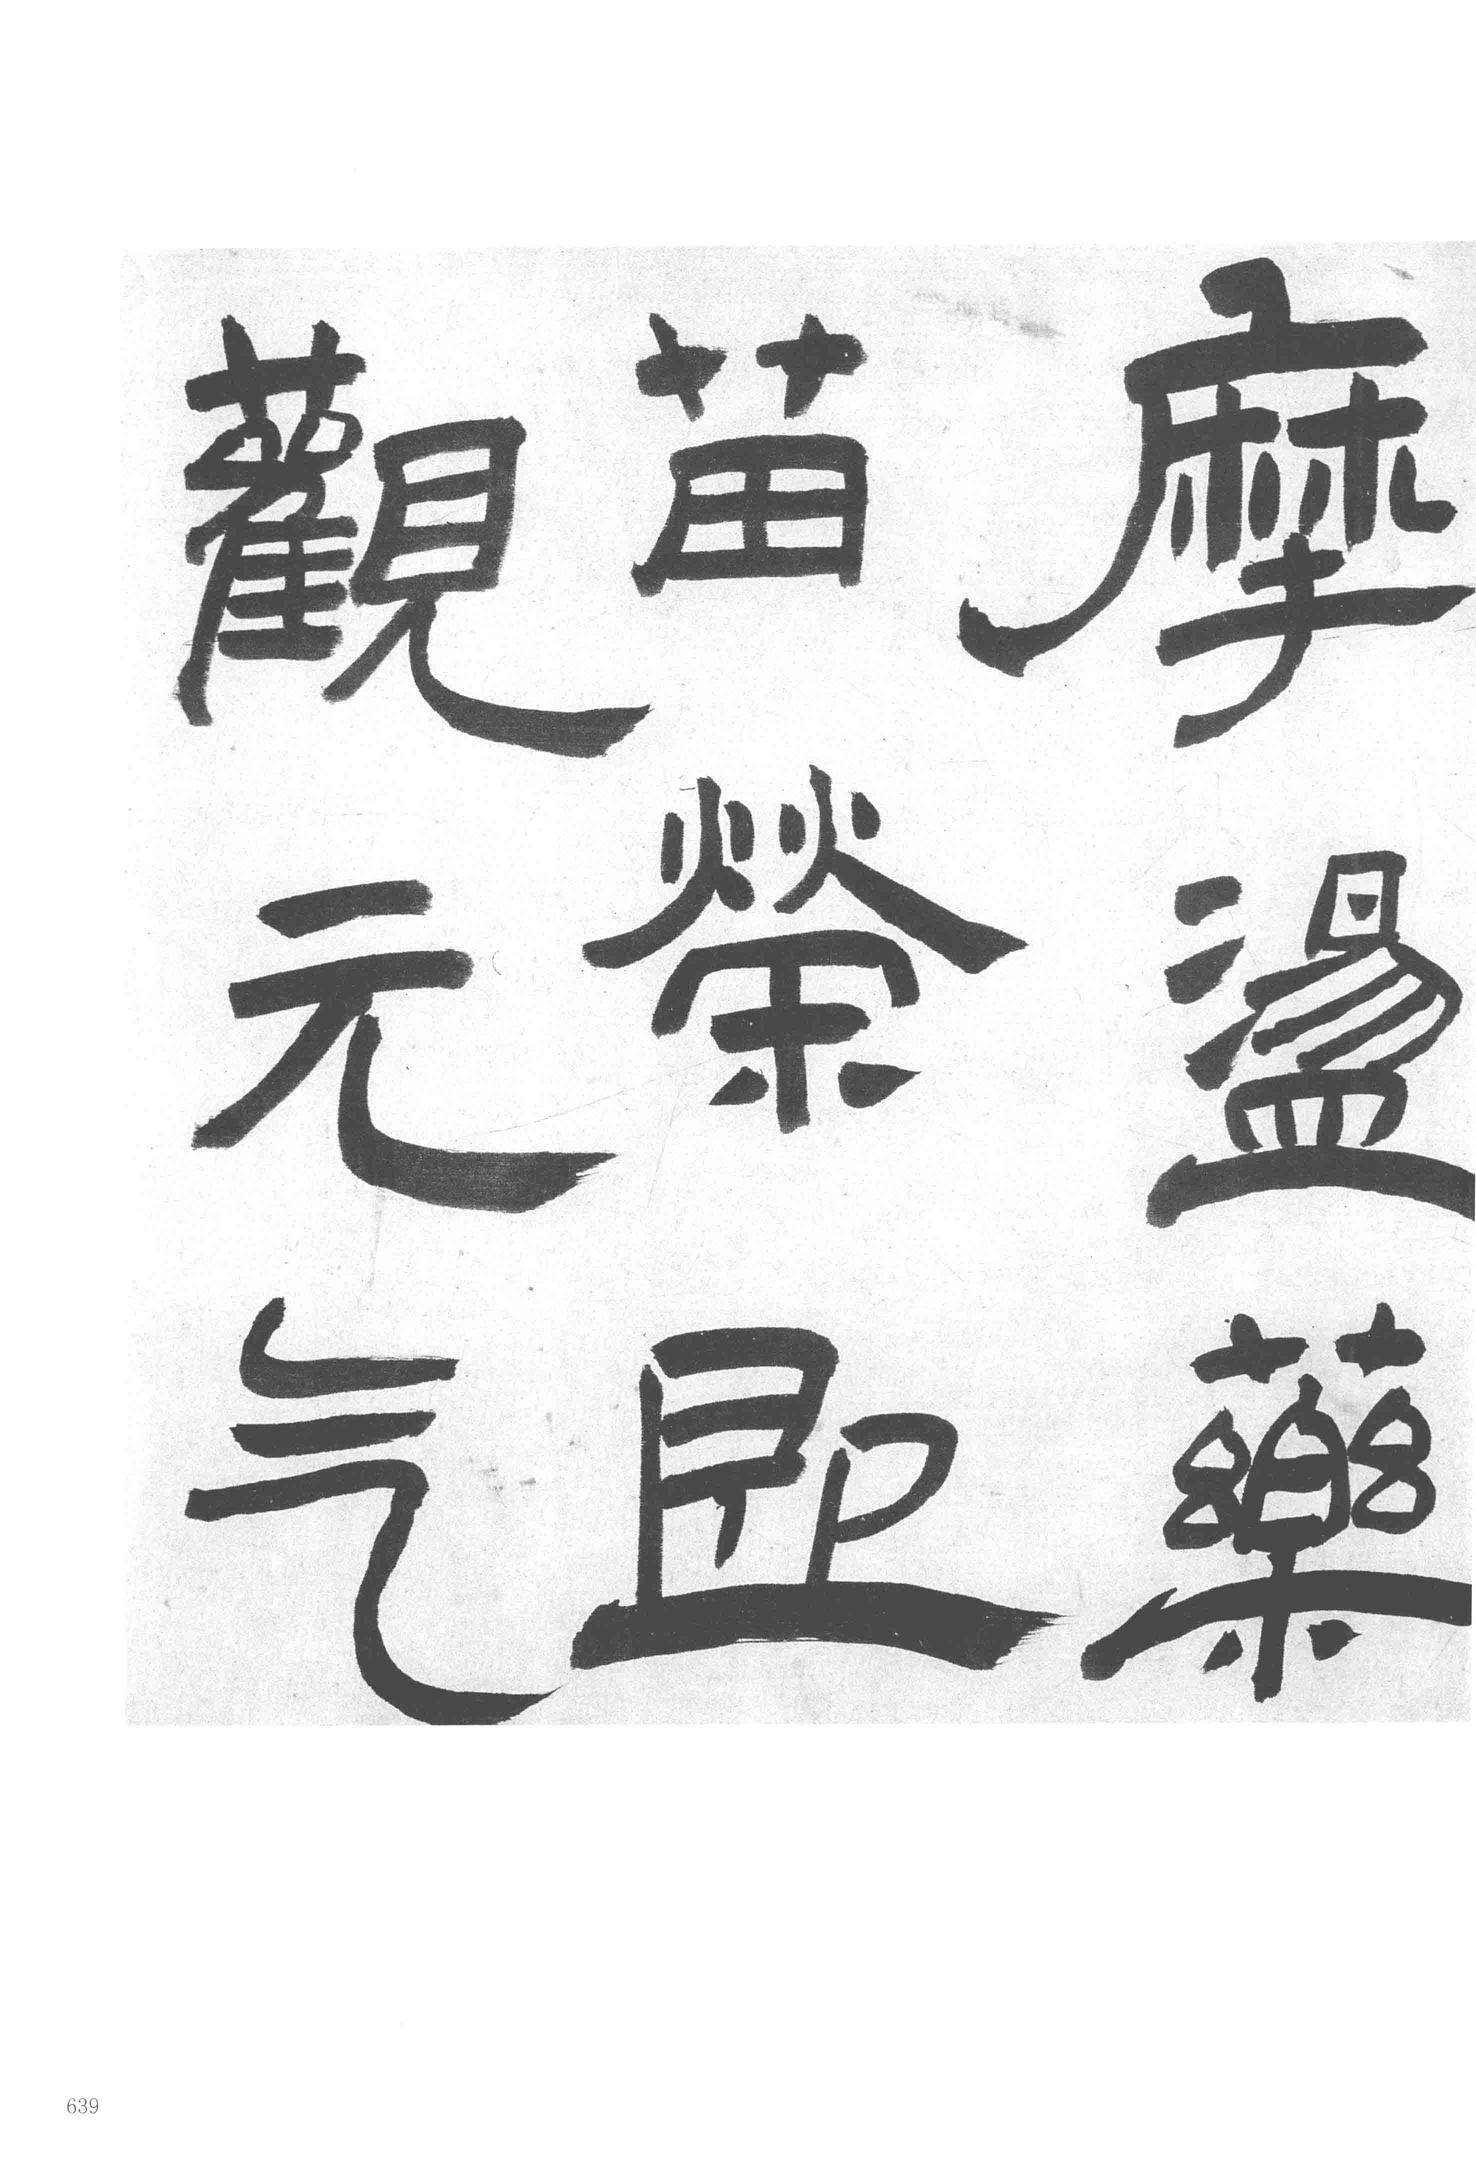 摩盪藥
苗榮即
觀元气
639